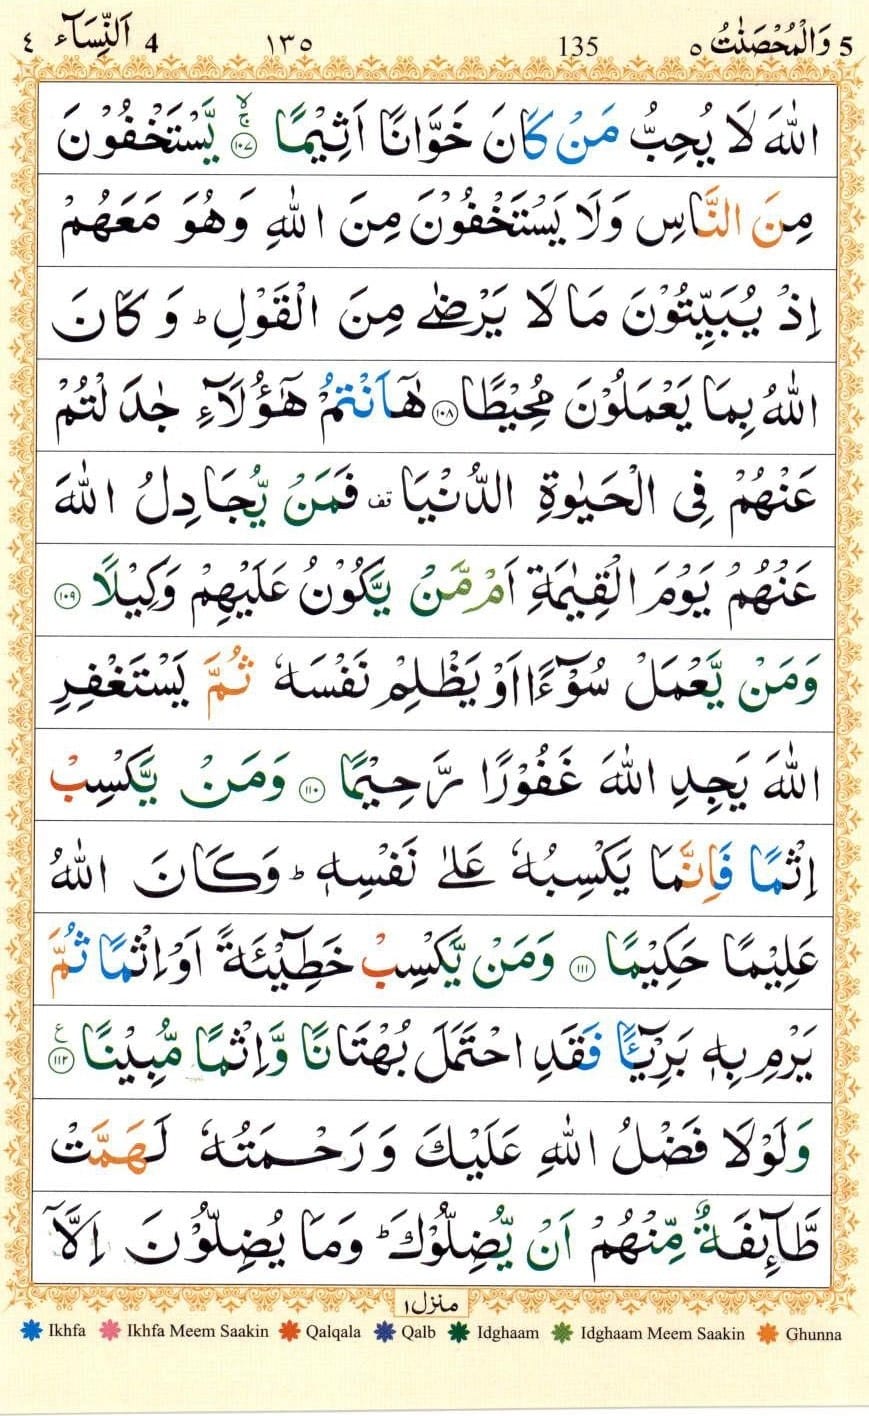 5 وَالْمُحْصَنٰتُ ٥ 135 ١٣٥ 4 اَلنِّسَآء ٤
اللّٰهَ لَا يُحِبُّ مَنْ كَانَ خَوَّانًا اَثِيْمًا ۚۙ ﴿١٠٧﴾ يَّسْتَخْفُوْنَ
مِنَ النَّاسِ وَلَا يَسْتَخْفُوْنَ مِنَ اللّٰهِ وَهُوَ مَعَهُمْ
اِذْ يُبَيِّتُوْنَ مَا لَا يَرْضٰى مِنَ الْقَوْلِ ؕ وَ كَانَ
اللّٰهُ بِمَا يَعْمَلُوْنَ مُحِيْطًا ﴿١٠٨﴾ هٰۤاَنْتُمْ هٰۤؤُلَآءِ جٰدَلْتُمْ
عَنْهُمْ فِى الْحَيٰوةِ الدُّنْيَا تف فَمَنْ يُّجَادِلُ اللّٰهَ
عَنْهُمْ يَوْمَ الْقِيٰمَةِ اَمْ مَّنْ يَّكُوْنُ عَلَيْهِمْ وَكِيْلًا ﴿١٠٩﴾
وَمَنْ يَّعْمَلْ سُوْٓءًا اَوْ يَظْلِمْ نَفْسَهٗ ثُمَّ يَسْتَغْفِرِ
اللّٰهَ يَجِدِ اللّٰهَ غَفُوْرًا رَّحِيْمًا ﴿١١٠﴾ وَمَنْ يَّكْسِبْ
اِثْمًا فَاِنَّمَا يَكْسِبُهٗ عَلٰى نَفْسِهٖ ؕ وَكَانَ اللّٰهُ
عَلِيْمًا حَكِيْمًا ﴿١١١﴾ وَمَنْ يَّكْسِبْ خَطِيْٓئَةً اَوْ اِثْمًا ثُمَّ
يَرْمِ بِهٖ بَرِيْٓئًا فَقَدِ احْتَمَلَ بُهْتَانًا وَّاِثْمًا مُّبِيْنًا ﴿١١٢﴾ ع
وَلَوْلَا فَضْلُ اللّٰهِ عَلَيْكَ وَرَحْمَتُهٗ لَهَمَّتْ
طَّآئِفَةٌ مِّنْهُمْ اَنْ يُّضِلُّوْكَ ؕ وَمَا يُضِلُّوْنَ اِلَّاۤ
منزل ١
Ikhfa Ikhfa Meem Saakin Qalqala Qalb Idghaam Idghaam Meem Saakin Ghunna